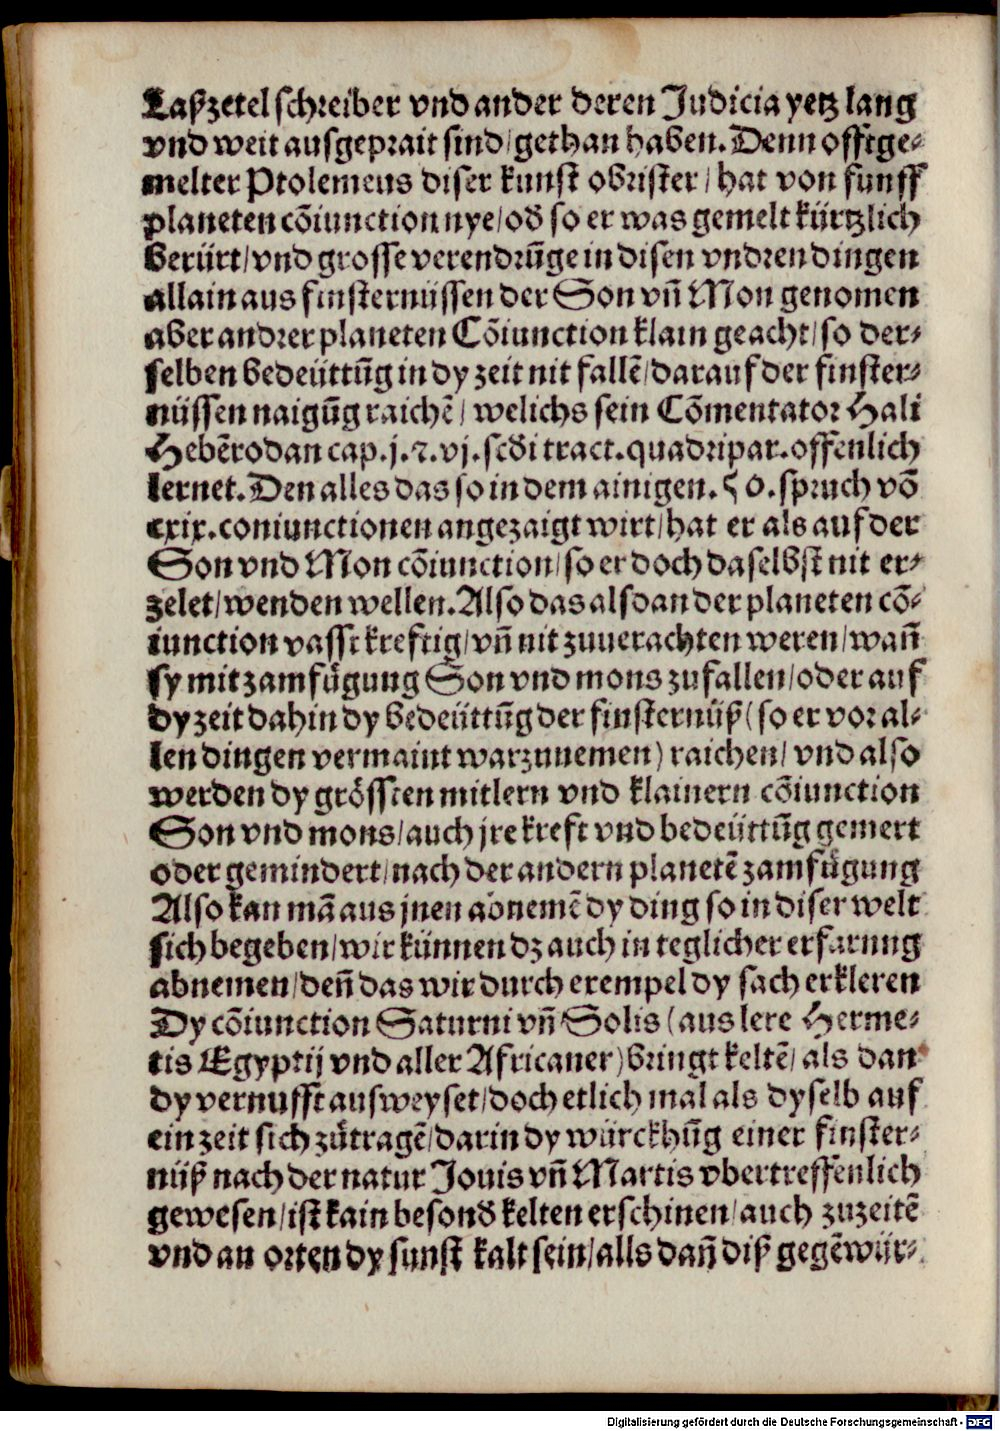 Laßzetel schreiber vnd ander deren Judicia yetz lang
vnd weit ausgeprait sind/gethan haben. Denn offtge-
melter Ptolemeus diser kunst obrister/hat von funff
planeten cōiunction nye/od̄ so er was gemelt kürtzlich
berürt/vnd grosse verendrūge in disen vndren dingen
allain aus finsternüssen der Son vn̄ Mon genomen
aber andrer planeten Cōiunction klain geacht/so der-
selben bedeüttūg in dy zeit nit fallē/darauf der finster-
nüssen naigūg raichē/welichs sein Cōmentator Hali
Hebērodan cap.j.⁊.vj.scd̄i tract.quadripar.offenlich
lernet. Den alles das so in dem ainigen.50.spruch vō
cxix.coniunctionen angezaigt wirt/hat er als auf der
Son vnd Mon cōiunction/so er doch daselbst nit er-
zelet/wenden wellen. Also das alsdan der planeten cō-
iunction vasst kreftig/vn̄ nit zuuerachten weren/wan̄
sy mit zamfügung Son vnd mons zufallen/oder auf
dy zeit dahin dy bedeüttūg der finsternüß(so er vor al-
len dingen vermaint warzunemen) raichen/vnd also
werden dy grössten mitlern vnd klainern cōiunction
Son vnd mons/auch jre kreft vnd bedeüttūg gemert
oder gemindert/nach der andern planetē zamfügung
Also kan mā aus jnen abnemē dy ding so in diser welt
sich begeben/wir künnen dz auch in teglicher erfarung
abnemen/den̄ das wir durch exempel dy sach erkleren
Dy cōiunction Saturni vn̄ Solis (aus lere Herme-
tis Egyptij vnd aller Africaner)bringt keltē/als dan
dy vernufft ausweyset/doch etlich mal als dyselb auf
ein zeit sich zůtragē/darin dy würckhūg einer finster-
nüß nach der natur Jouis vn̄ Martis vbertreffenlich
gewesen/ist kain besond̄ kelten erschinen/auch zuzeitē
vnd an orten dy sunst kalt sein/alls dan̄ diß gegēwür-
Digitalisierung gefördert durch die Deutsche Forschungsgemeinschaft - DFG